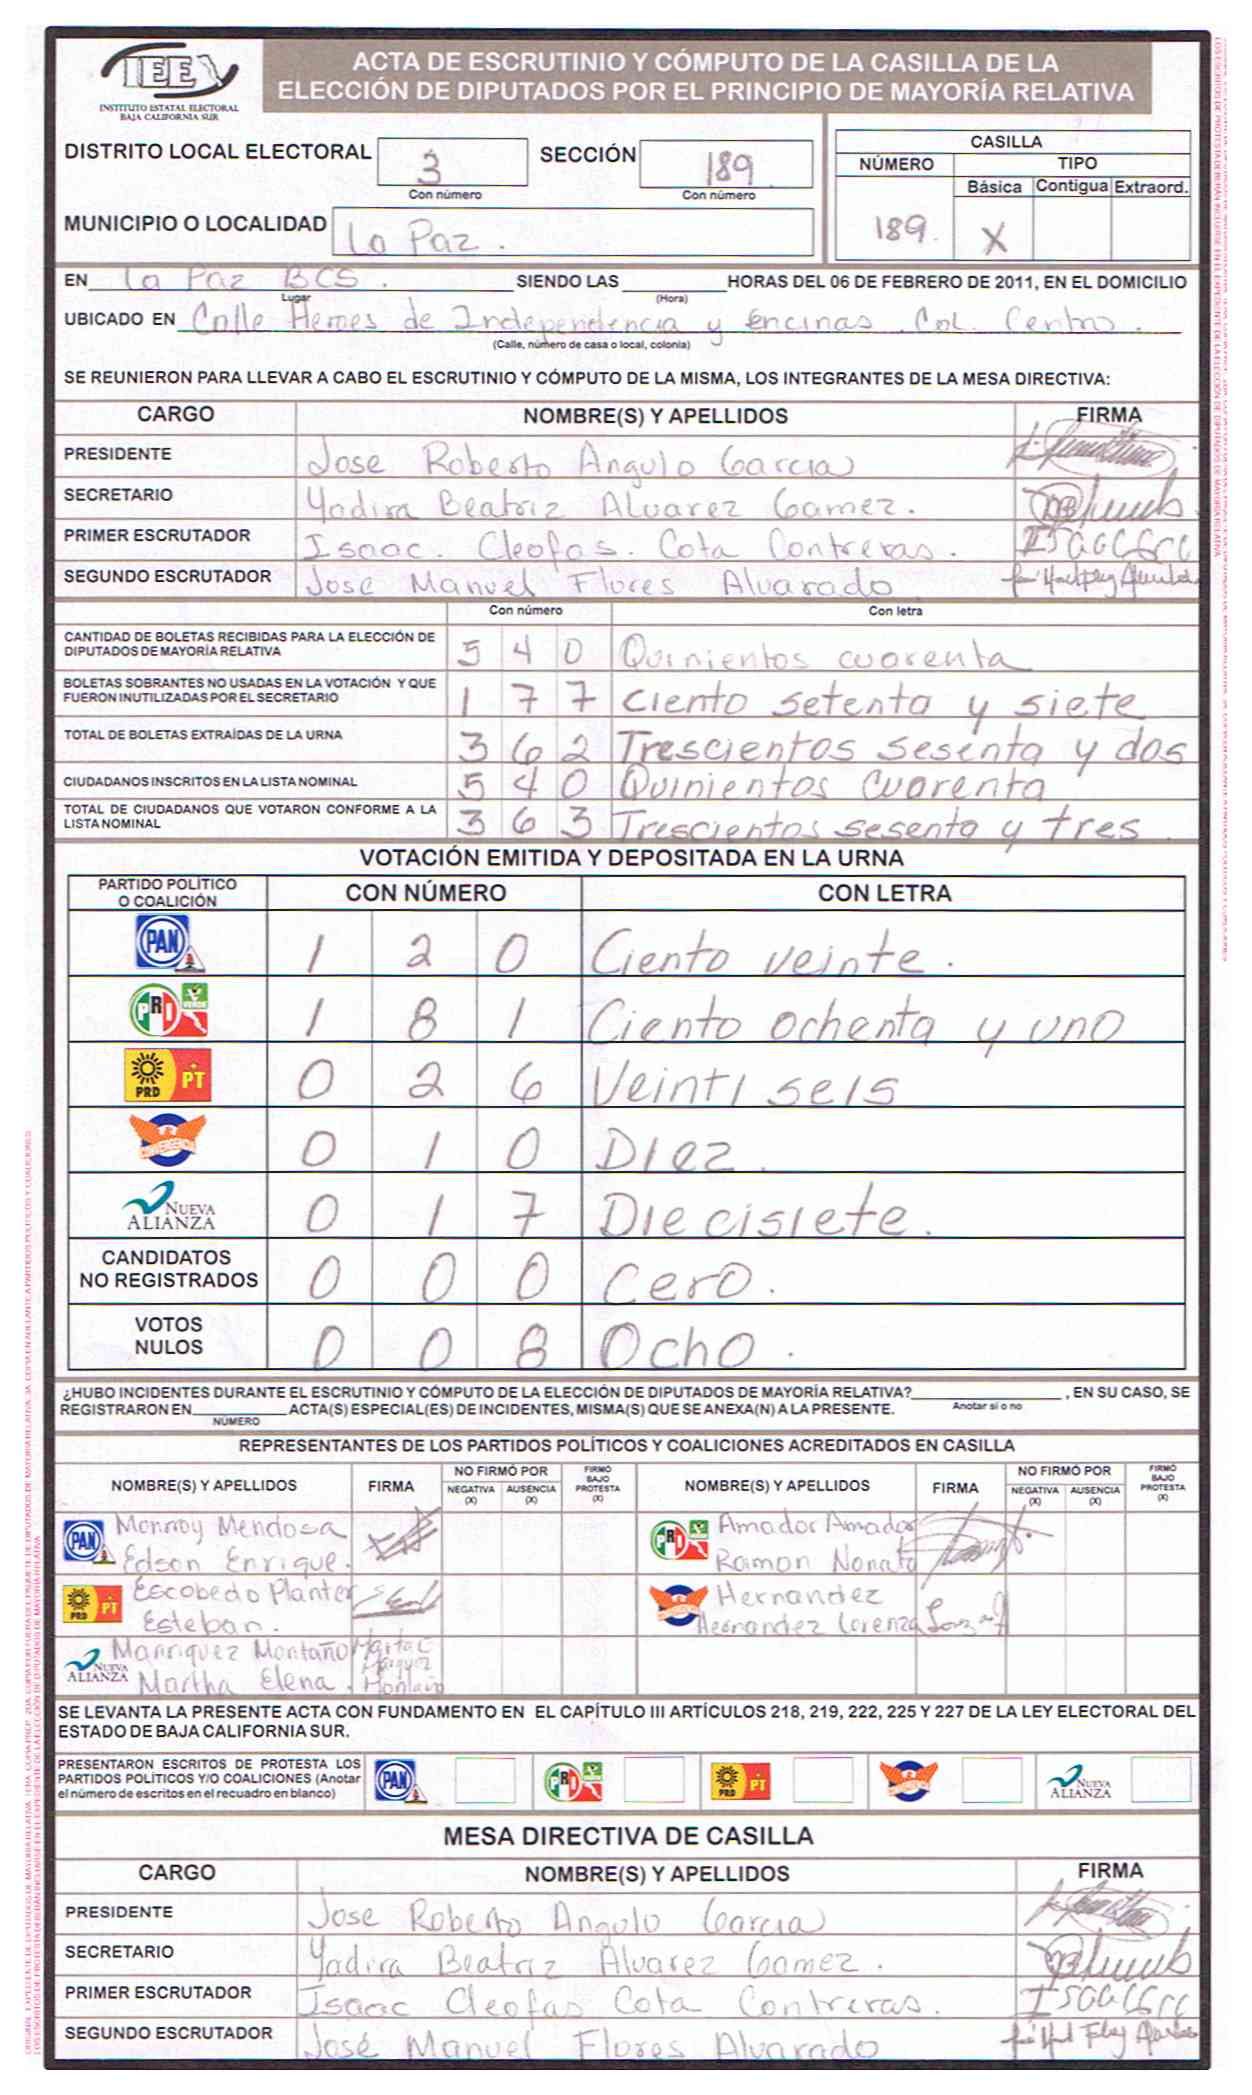 IEE
INSTITUTO ESTATAL ELECTORAL
BAJA CALIFORNIA SUR
ACTA DE ESCRUTINIO Y CÓMPUTO DE LA CASILLA DE LA
ELECCIÓN DE DIPUTADOS POR EL PRINCIPIO DE MAYORÍA RELATIVA
DISTRITO LOCAL ELECTORAL 3 SECCIÓN 189
Con número Con número
CASILLA
NÚMERO TIPO
Básica Contigua Extraord.
189. X
MUNICIPIO O LOCALIDAD La Paz.
EN La Paz BCS. SIENDO LAS HORAS DEL 06 DE FEBRERO DE 2011, EN EL DOMICILIO
Lugar (Hora)
UBICADO EN Calle Heroes de Independencia y Encinas. Col. Centro.
(Calle, número de casa o local, colonia)
SE REUNIERON PARA LLEVAR A CABO EL ESCRUTINIO Y CÓMPUTO DE LA MISMA, LOS INTEGRANTES DE LA MESA DIRECTIVA:
CARGO NOMBRE(S) Y APELLIDOS FIRMA
PRESIDENTE Jose Roberto Angulo Garcia
SECRETARIO Yadira Beatriz Alvarez Gamez.
PRIMER ESCRUTADOR Isaac. Cleofas. Cota Contreras.
SEGUNDO ESCRUTADOR José Manuel Flores Alvarado.
Con número Con letra
CANTIDAD DE BOLETAS RECIBIDAS PARA LA ELECCIÓN DE
DIPUTADOS DE MAYORÍA RELATIVA 5 4 0 Quinientos cuarenta
BOLETAS SOBRANTES NO USADAS EN LA VOTACIÓN Y QUE
FUERON INUTILIZADAS POR EL SECRETARIO 1 7 7 Ciento setenta y siete
TOTAL DE BOLETAS EXTRAÍDAS DE LA URNA 3 6 2 Trescientos sesenta y dos
CIUDADANOS INSCRITOS EN LA LISTA NOMINAL 5 4 0 Quinientos cuarenta
TOTAL DE CIUDADANOS QUE VOTARON CONFORME A LA
LISTA NOMINAL 3 6 3 Trescientos sesenta y tres.
VOTACIÓN EMITIDA Y DEPOSITADA EN LA URNA
PARTIDO POLÍTICO
O COALICIÓN CON NÚMERO CON LETRA
PAN 1 2 0 Ciento veinte.
PRI VERDE 1 8 1 Ciento ochenta y uno
PRD PT 0 2 6 Veinti seis
CONVERGENCIA 0 1 0 Diez.
NUEVA ALIANZA 0 1 7 Diecisiete.
CANDIDATOS
NO REGISTRADOS 0 0 0 Cero.
VOTOS
NULOS 0 0 8 Ocho.
¿HUBO INCIDENTES DURANTE EL ESCRUTINIO Y CÓMPUTO DE LA ELECCIÓN DE DIPUTADOS DE MAYORÍA RELATIVA? , EN SU CASO, SE
Anotar si o no
REGISTRARON EN ACTA(S) ESPECIAL(ES) DE INCIDENTES, MISMA(S) QUE SE ANEXA(N) A LA PRESENTE.
NÚMERO
REPRESENTANTES DE LOS PARTIDOS POLÍTICOS Y COALICIONES ACREDITADOS EN CASILLA
NOMBRE(S) Y APELLIDOS FIRMA NO FIRMÓ POR NEGATIVA (X) AUSENCIA (X) FIRMÓ BAJO PROTESTA (X) NOMBRE(S) Y APELLIDOS FIRMA NO FIRMÓ POR NEGATIVA (X) AUSENCIA (X) FIRMÓ BAJO PROTESTA (X)
PAN Monroy Mendosa
Edson Enrique.
PRI Amador Amador
Ramon Nonato
PRD PT Escobedo Planter
Esteban.
CONVERGENCIA Hernandez
Hernandez Lorenza
NUEVA ALIANZA Manriquez Montaño
Martha Elena.
SE LEVANTA LA PRESENTE ACTA CON FUNDAMENTO EN EL CAPÍTULO III ARTÍCULOS 218, 219, 222, 225 Y 227 DE LA LEY ELECTORAL DEL
ESTADO DE BAJA CALIFORNIA SUR.
PRESENTARON ESCRITOS DE PROTESTA LOS
PARTIDOS POLÍTICOS Y/O COALICIONES (Anotar
el número de escritos en el recuadro en blanco)
PAN PRI PRD PT CONVERGENCIA NUEVA ALIANZA
MESA DIRECTIVA DE CASILLA
CARGO NOMBRE(S) Y APELLIDOS FIRMA
PRESIDENTE Jose Roberto Angulo Garcia
SECRETARIO Yadira Beatriz Alvarez Gamez.
PRIMER ESCRUTADOR Isaac Cleofas Cota Contreras.
SEGUNDO ESCRUTADOR José Manuel Flores Alvarado